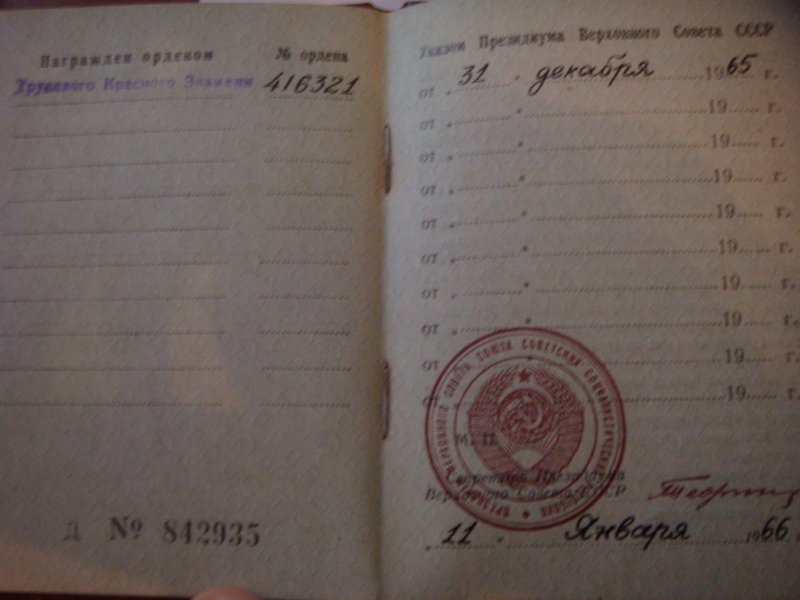 Награжден орденом № ордена
Трудового Красного Знамени 416321
Д № 842935
Указом Президиума Верховного Совета СССР
от „ 31 " декабря 1965 г.
от „ " 19 г.
от „ " 19 г.
от „ " 19 г.
от „ " 19 г.
от „ " 19 г.
от „ " 19 г.
от „ " 19 г.
от „ " 19 г.
от „ " 19 г.
М. П.
Секретарь Президиума
Верховного Совета СССР
„ 11 " Января 1966 г.
ПРЕЗИДИУМ ВЕРХОВНОГО СОВЕТА СОЮЗА СОВЕТСКИХ СОЦИАЛИСТИЧЕСКИХ РЕСПУБЛИК